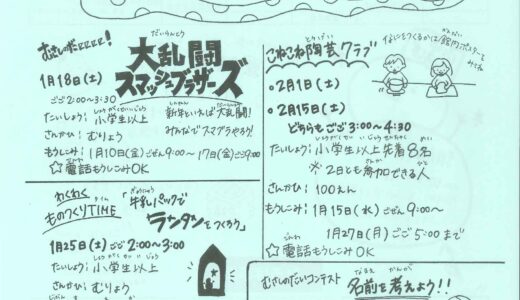 むさしのだEEEEE!
だいらんとう
大乱闘
スマッシュブラザーズ
1月18日(土)
ごご2:00〜3:30
しょうがくせいいじょう
たいしょう:小学生以上
さんかひ:むりょう
しんねん
新年といえば大乱闘!
みんなでスマブラやろう!
もうしこみ:1月10日(金)ごぜん9:00〜17日(金)ごご9:00
でんわ
☆電話もうしこみOK
わくわく
ものつくりTIME
ぎゅうにゅう
「牛乳パックで
ランタンをつくろう」
1月25日(土)ごご2:00〜3:00
しょうがくせいいじょう
たいしょう:小学生以上
さんかひ:むりょう
とうげい
こねこね陶芸クラブ
なにをつくるかは館内ポスターを
みてね
○2月1日(土)
○2月15日(土)
どちらもごご3:00〜4:30
たいしょう:小学生以上先着8名
さんか
※2日とも参加できる人
さんかひ:100えん
もうしこみ:1月15日(水)ごぜん9:00〜
1月27日(月)ごご5:00まで
でんわ
☆電話もうしこみOK
むさしのだいコンテスト
なまえ かんが
名前を考えよう!!